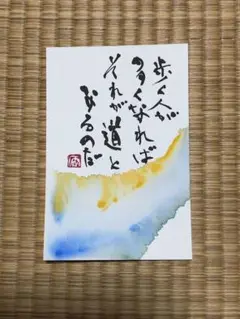 歩く人が
多くなれば
それが道と
なるのだ